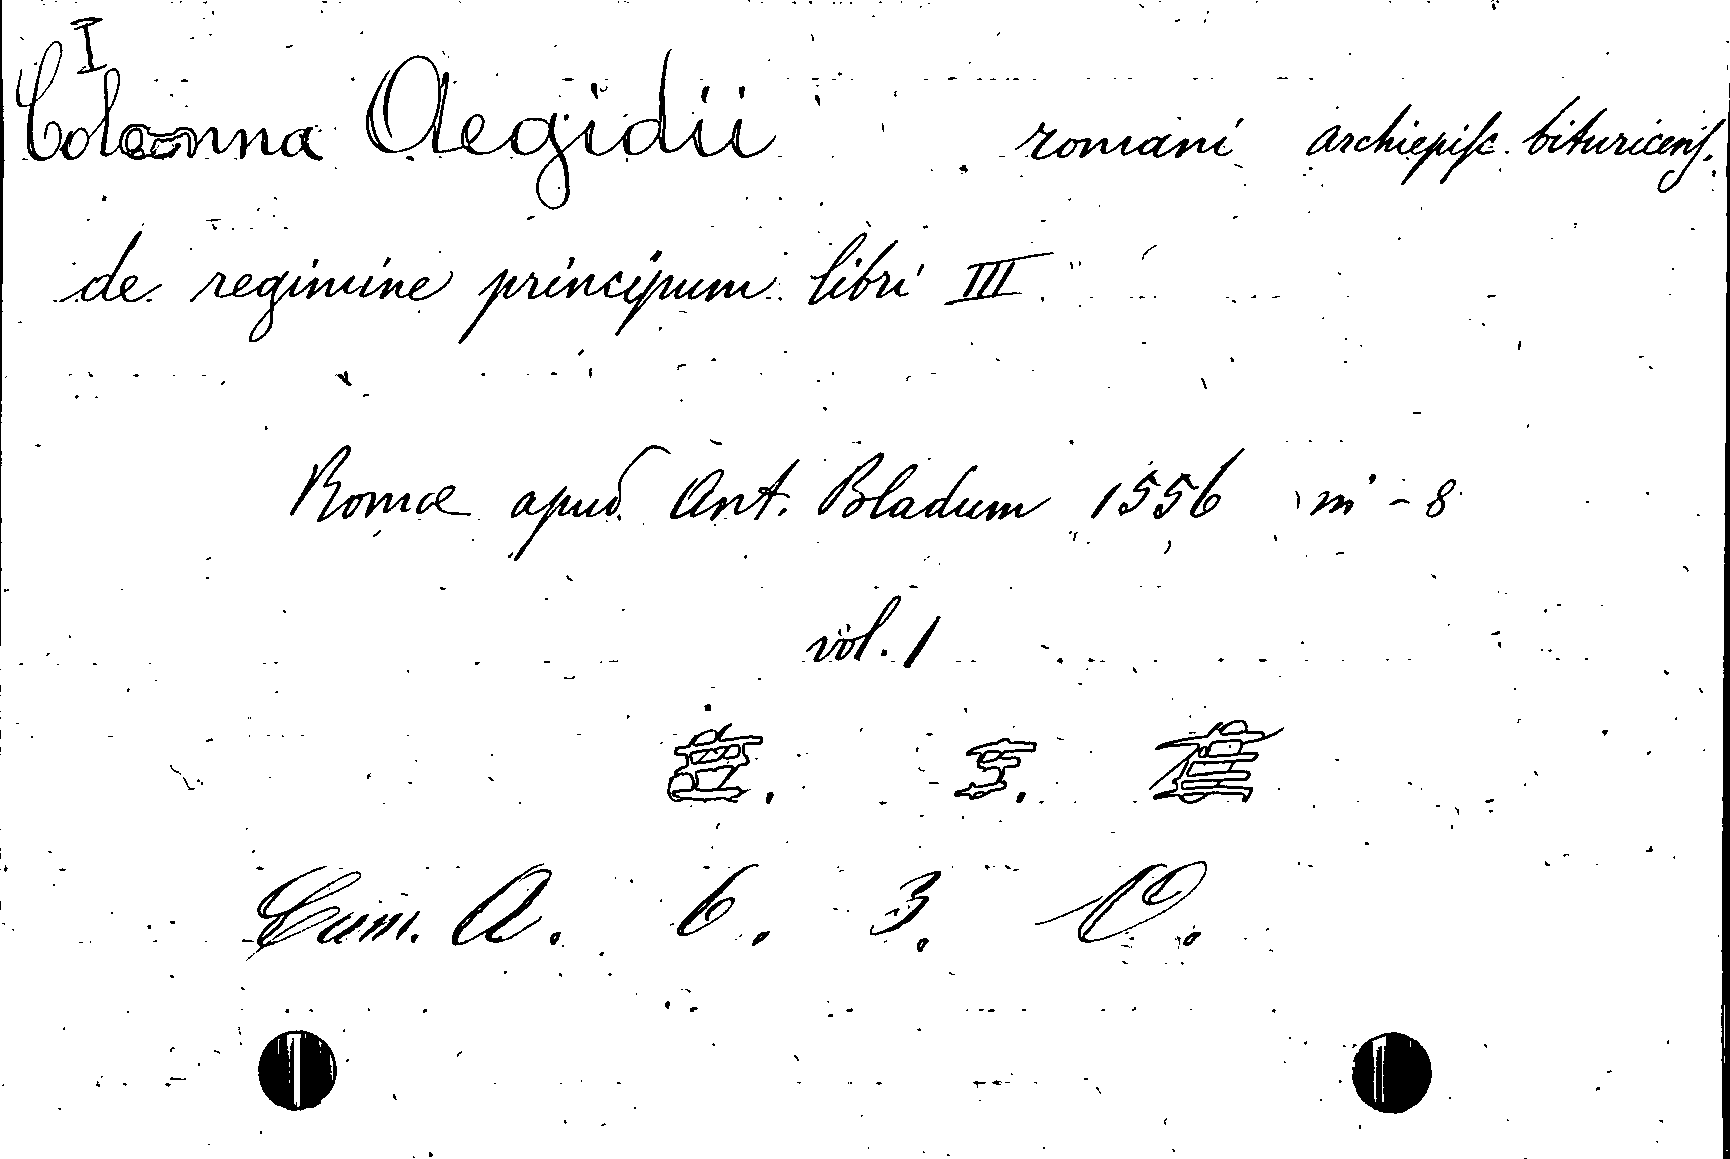 I
Colonna Aegidii romani archiepisc. bituricens.
de regimine principum libri III
Romæ apud Ant. Bladum 1556 in - 8
vol. 1
Cam. A. 6. 3. C.